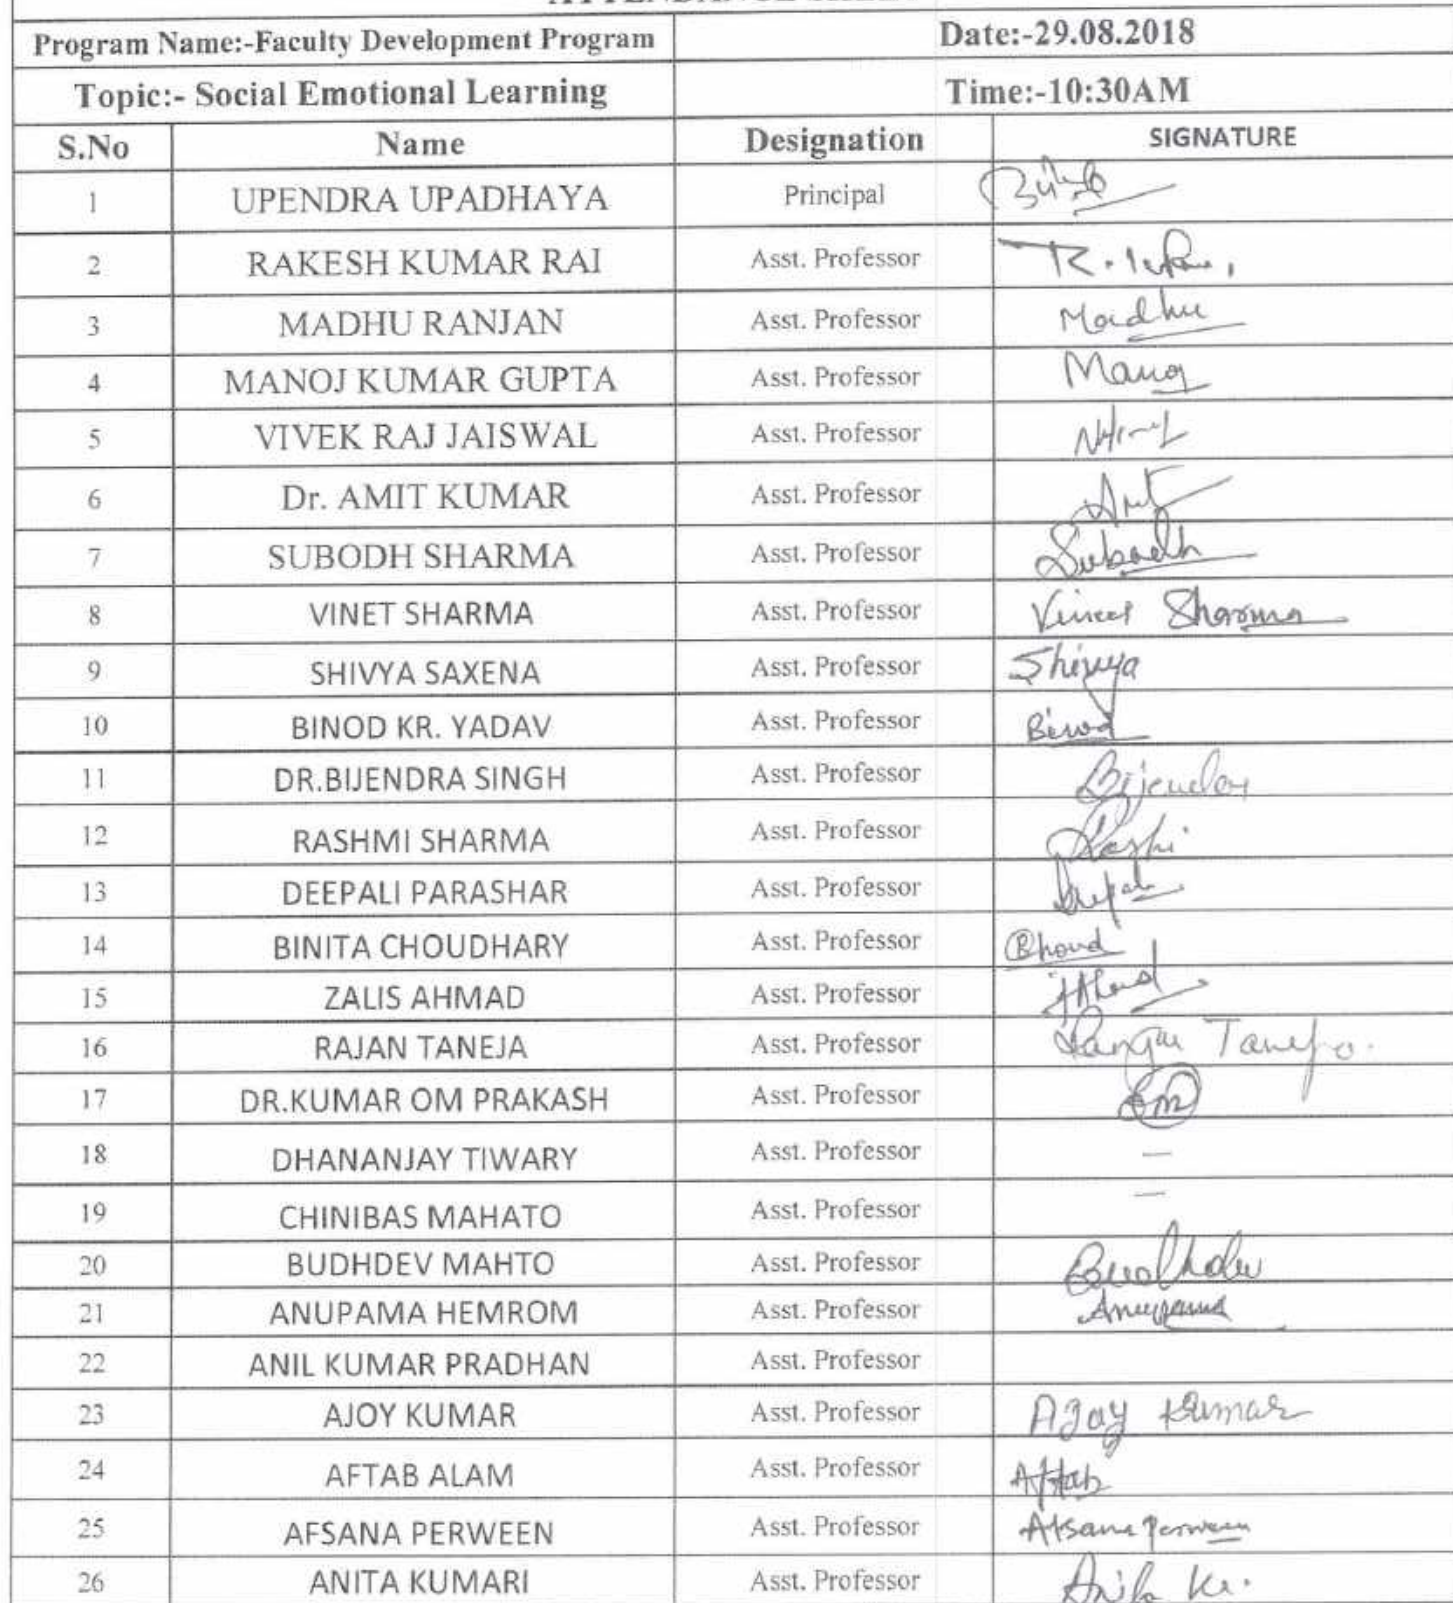 ATTENDANCE SHEET
Program Name:-Faculty Development Program Date:-29.08.2018
Topic:- Social Emotional Learning Time:-10:30AM
S.No Name Designation SIGNATURE
1 UPENDRA UPADHAYA Principal
2 RAKESH KUMAR RAI Asst. Professor
3 MADHU RANJAN Asst. Professor Madhu
4 MANOJ KUMAR GUPTA Asst. Professor Manoj
5 VIVEK RAJ JAISWAL Asst. Professor
6 Dr. AMIT KUMAR Asst. Professor Amit
7 SUBODH SHARMA Asst. Professor Subodh
8 VINET SHARMA Asst. Professor Vineet Sharma
9 SHIVYA SAXENA Asst. Professor Shivya
10 BINOD KR. YADAV Asst. Professor Binod
11 DR.BIJENDRA SINGH Asst. Professor
12 RASHMI SHARMA Asst. Professor
13 DEEPALI PARASHAR Asst. Professor
14 BINITA CHOUDHARY Asst. Professor
15 ZALIS AHMAD Asst. Professor
16 RAJAN TANEJA Asst. Professor Taneja.
17 DR.KUMAR OM PRAKASH Asst. Professor
18 DHANANJAY TIWARY Asst. Professor —
19 CHINIBAS MAHATO Asst. Professor —
20 BUDHDEV MAHTO Asst. Professor
21 ANUPAMA HEMROM Asst. Professor Anupama
22 ANIL KUMAR PRADHAN Asst. Professor
23 AJOY KUMAR Asst. Professor AJay Kumar
24 AFTAB ALAM Asst. Professor Aftab
25 AFSANA PERWEEN Asst. Professor Afsana Perween
26 ANITA KUMARI Asst. Professor Anita Ku.